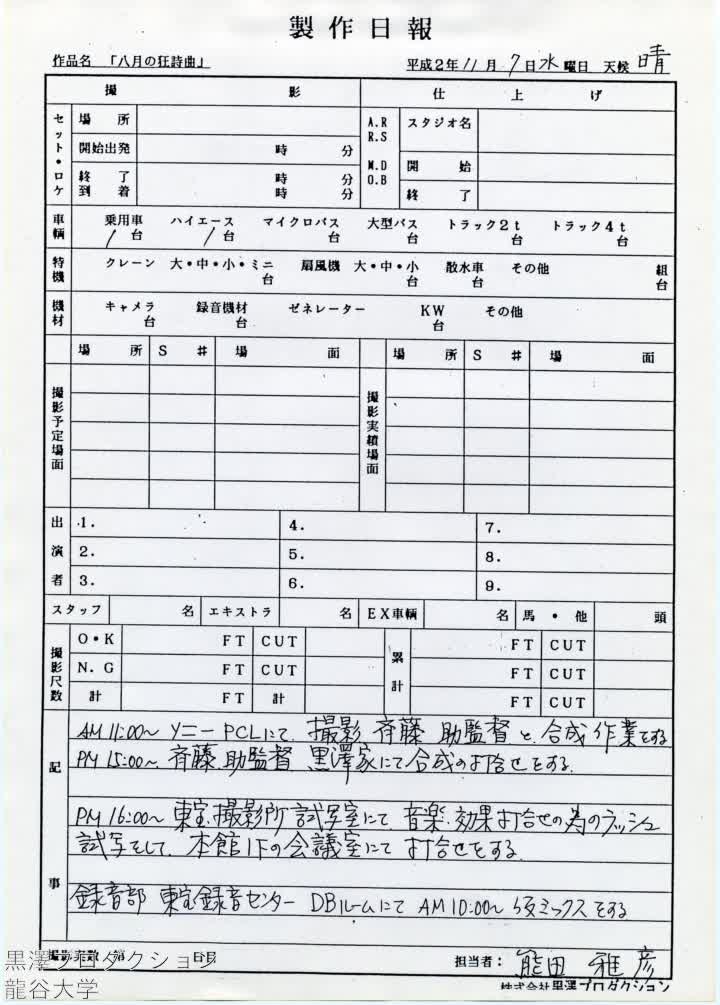 製作日報
作品名 「八月の狂詩曲」 平成2年11月7日水曜日 天候 晴
撮影 仕上げ
セット・ロケ 場所 A.R R.S スタジオ名
開始出発 時 分 M.D O.B 開始
終了 時 分 終了
到着 時 分
車輌 乗用車 ハイエース マイクロバス 大型バス トラック2t トラック4t
1台 1台 台 台 台 台
特機 クレーン 大・中・小・ミニ 扇風機 大・中・小 散水車 その他 組
台 台 台 台
機材 キャメラ 録音機材 ゼネレーター KW その他
台 台 台
場所 S # 場面 場所 S # 場面
撮影予定場面 撮影実績場面
出演者 1. 4. 7.
2. 5. 8.
3. 6. 9.
スタッフ 名 エキストラ 名 EX車輌 名 馬・他 頭
撮影尺数 O・K FT CUT 累計 FT CUT
N.G FT CUT FT CUT
計 FT 計 FT CUT
記事
AM 11:00〜 ソニーPCLにて、撮影 斉藤 助監督と、合成作業をする
PM 15:00〜 斉藤、助監督 黒澤家にて合成の打合せをする
PM 16:00〜 東宝撮影所試写室にて、音楽、効果打合せの為のラッシュ
試写をして、本館1Fの会議室にて打合せをする
録音部 東宝録音センター DBルームにて AM10:00〜 仮ミックスをする
担当者: 熊田雅彦
株式会社黒澤プロダクション
黒澤プロダクション
龍谷大学